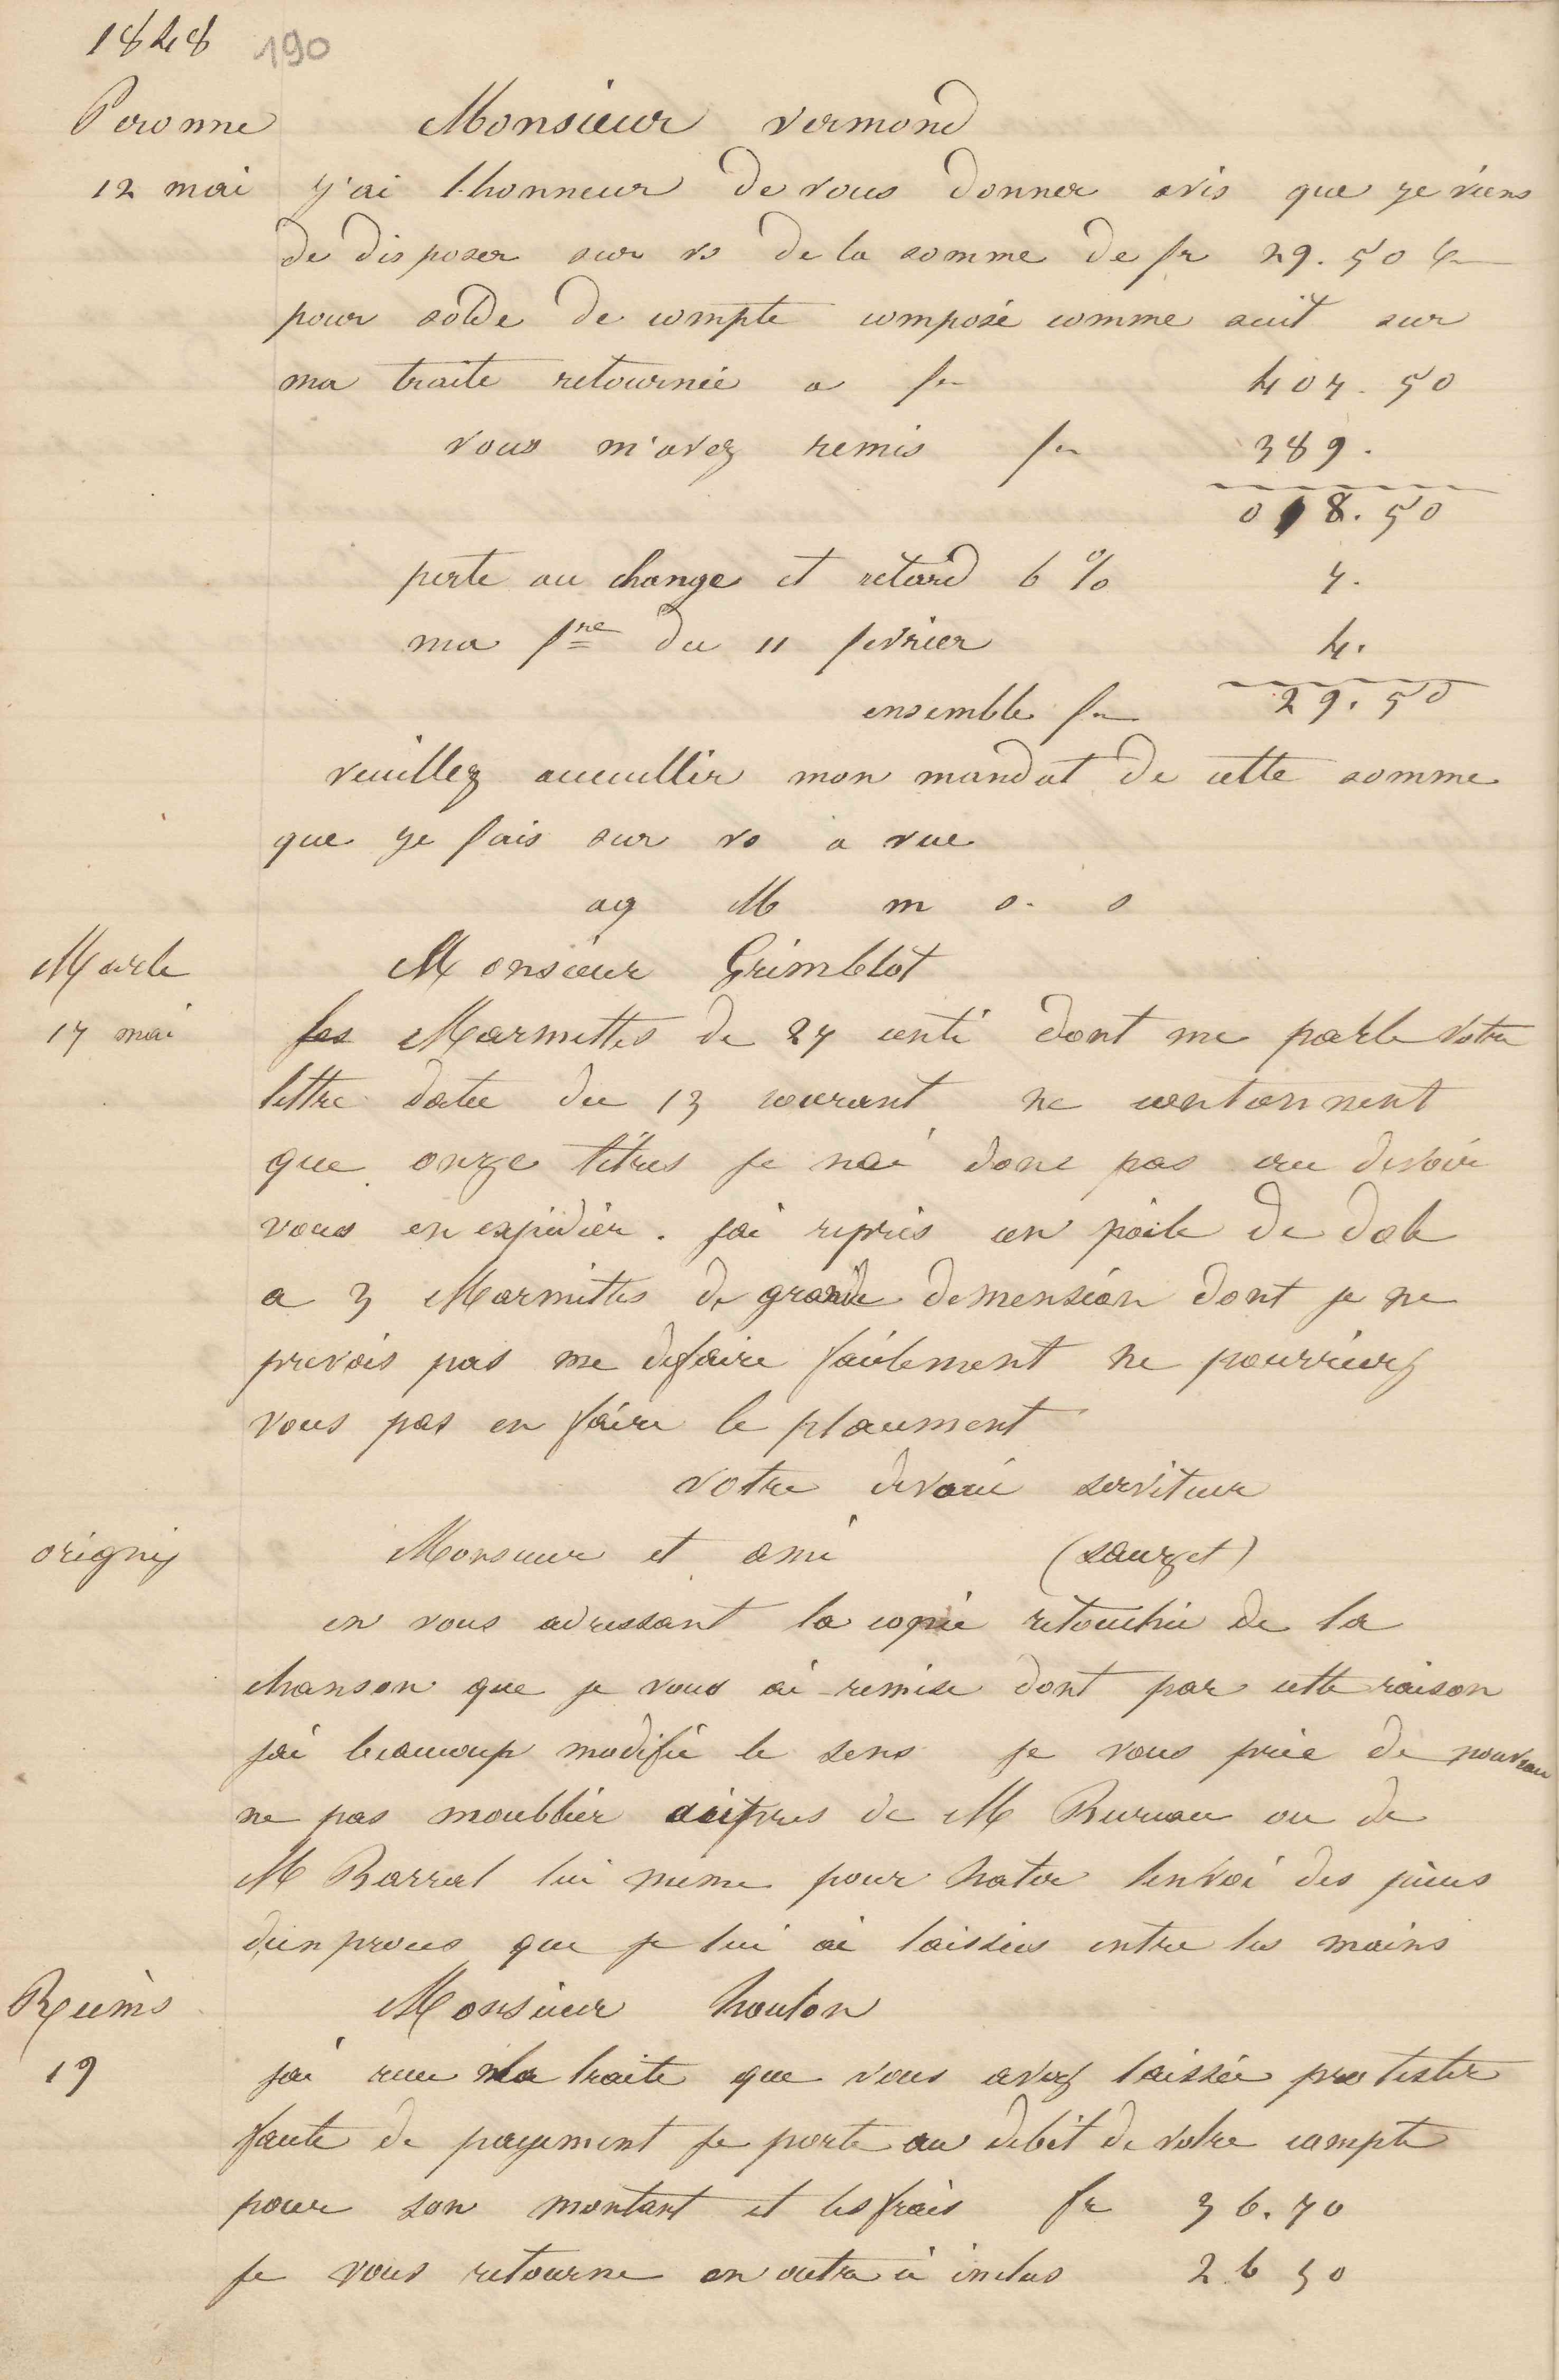 1848 190
Peronne Monsieur vermond
12 mai j'ai l'honneur de vous donner avis que je viens
de disposer sur vs de la somme de fr 29.50 c
pour solde de compte composé comme suit sur
ma traite retournée a fr 407.50
vous m'avez remis fr 389.
018.50
perte au change et retard 6 % 7.
ma fre du 11 fevrier 4.
ensemble fr 29.50
veuillez accueillir mon mandat de cette somme
que je fais sur vs a vue
ag M m s. s
Marle Monsieur Grimblot
17 mai les Marmittes de 27 centi dont me parle votre
lettre datée du 13 courant ne contiennent
que onze litres je nai donc pas cru devoir
vous en expédier. jai repris un poële de dole
a 3 Marmittes de grande demension dont je ne
prevois pas me defaire facilement ne pourriez
vous pas en faire le placement
votre devoué serviteur
origny Monsieur et ami (sauzet)
en vous adressant la copie retouchée de la
chanson que je vous ai remise dont par cette raison
jai beaucoup modifié le sens je vous prie de nouveau
ne pas moublier auprès de M Bureau ou de
M Barral lui meme pour hater lenvoi des pièces
dun procès que je lui ai laissées entre les mains
Reims Monsieur houlon
19 jai reçu la traite que vous avez laissée protester
faute de payement je porte au debit de votre compte
pour son montant et les frais fr 36.70
je vous retourne en outre ci inclus 26 50